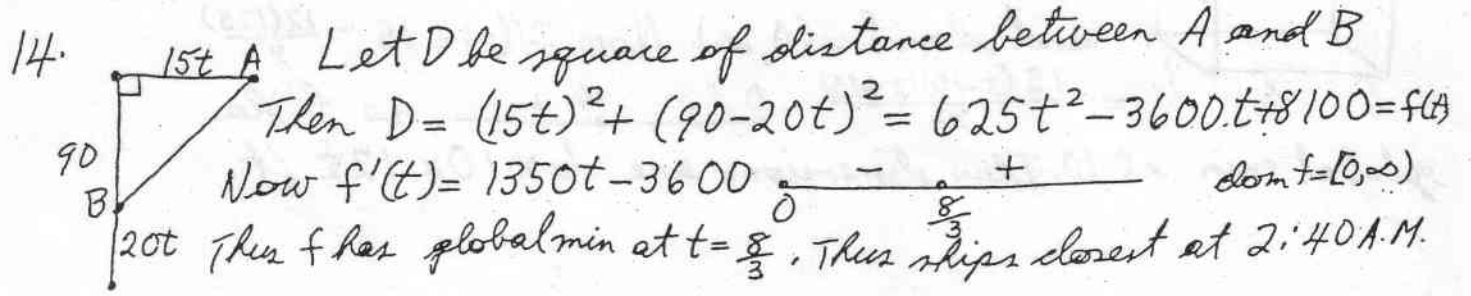 14. 15t A Let D be square of distance between A and B
Then D = (15t)² + (90-20t)² = 625t² - 3600t + 8100 = f(t)
90
Now f'(t) = 1350t - 3600 - + dom f = [0,∞)
B 0 8/3
20t Thus f has global min at t = 8/3. Thus ships closest at 2:40 A.M.